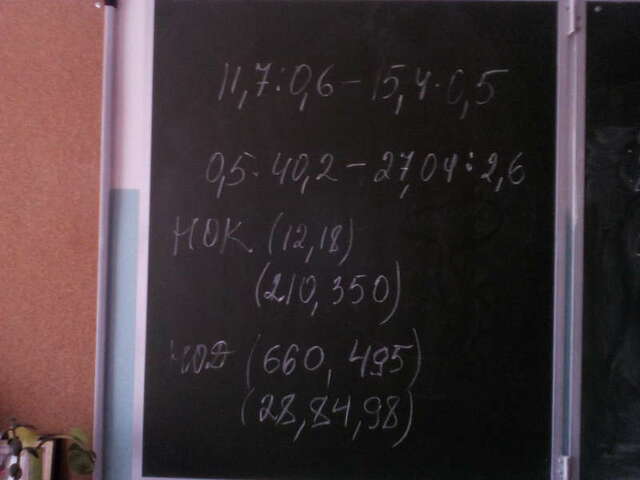 11,7:0,6-15,4·0,5
0,5·40,2-27,04:2,6
НОК (12,18)
(210,350)
НОД (660, 495)
(28,84,98)